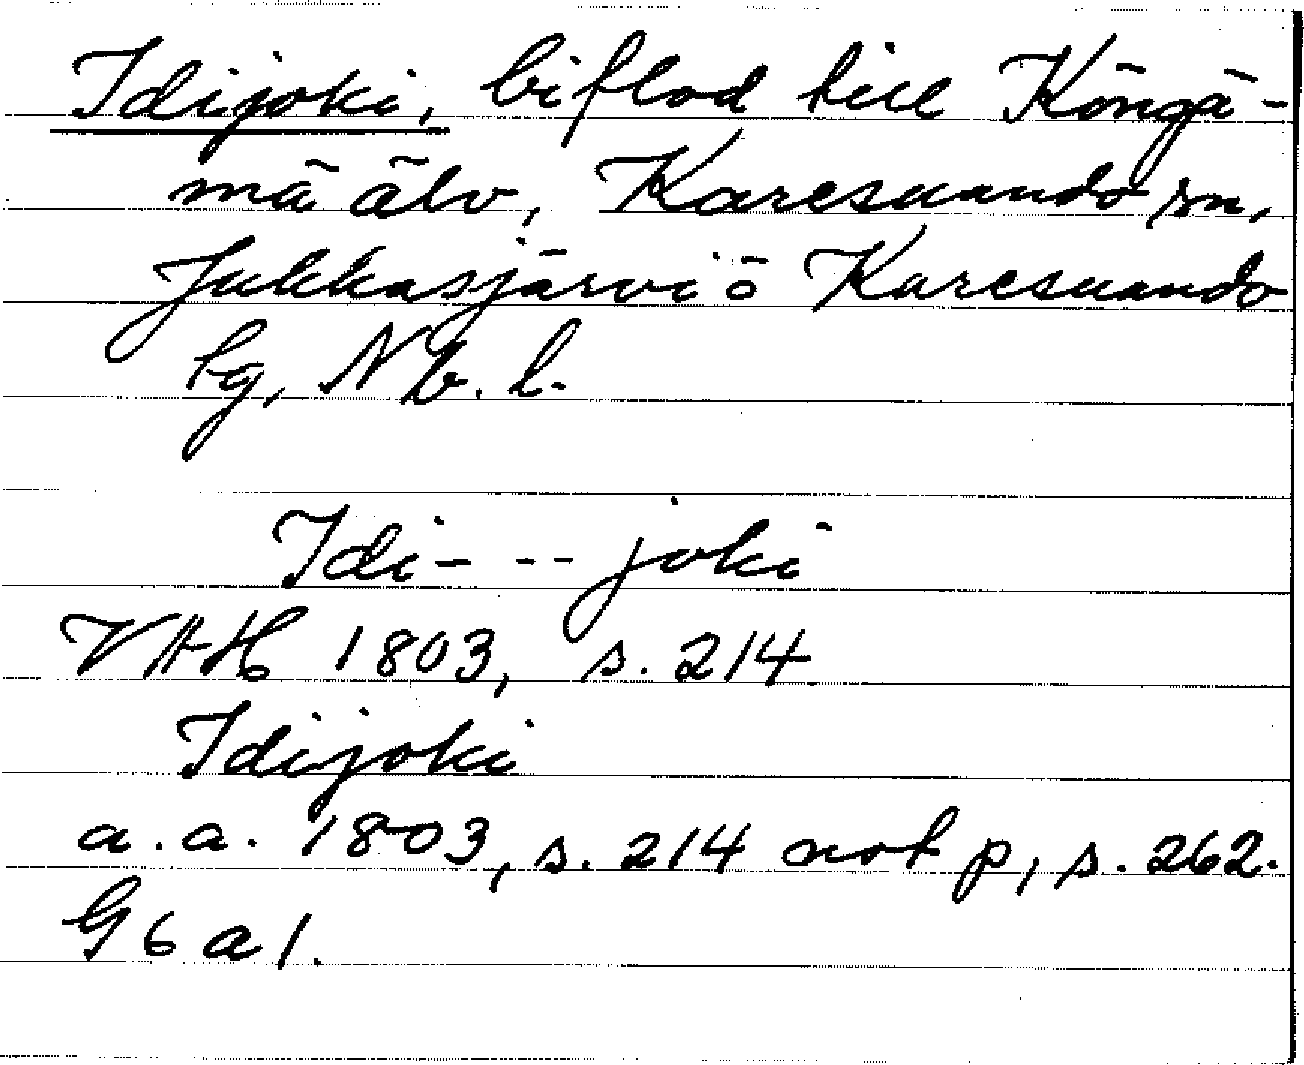 Idijoki, biflod till Köngä-
mä älv, Karesuando sn,
Jukkasjärvi o Karesuando
lg, Nb. l.
Idi- -- joki
VAH 1803, s. 214
Idijoki
a.a. 1803, s. 214 not p, s. 262.
G6a1.